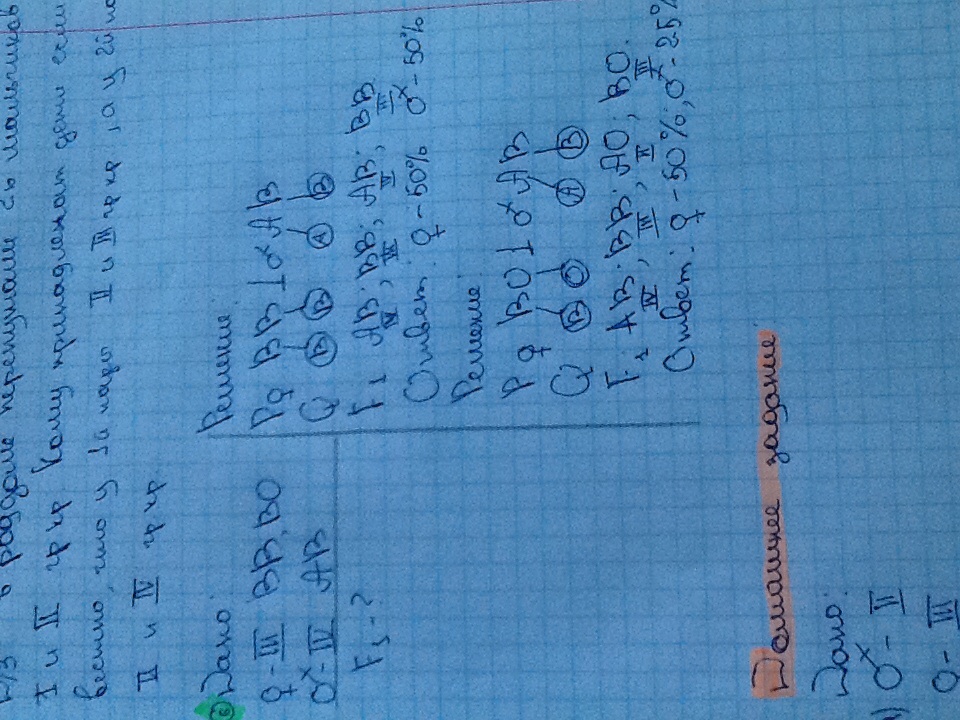 в роддоме перепутали 2ъ мальчиков
I и II гр кр Кому принадлежат дети если
вестно, что у 1й пары II и III гр кр, а у 2й
II и IV гр кр
⑥ Дано:
♀ - III BB, BO
♂ - IV AB
F₁ - ?
Решение:
P ♀ BB ⊥ ♂ AB
G B B A B
F₁ AB; BB; AB; BB
IV III II III
Ответ: ♀ - 50% ♂ - 50%
Решение
P ♀ BO ⊥ ♂ AB
G B O A B
F₁ AB; BB; AO; BO.
IV III II III
Ответ: ♀ - 50%; ♂ - 25%
Домашнее задание
Дано:
♂ - II
♀ - III